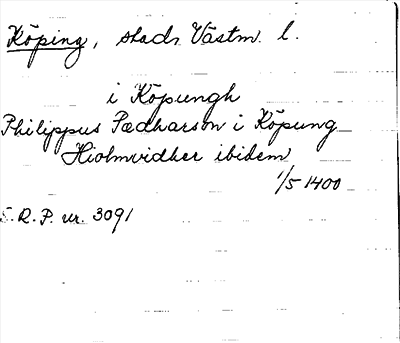 Köping, stad. Västm. l.
i Köpungh
Philippus Pædharson i Köpung
Hiolmvidher ibidem
1/5 1400
S.R.P. nr. 3091